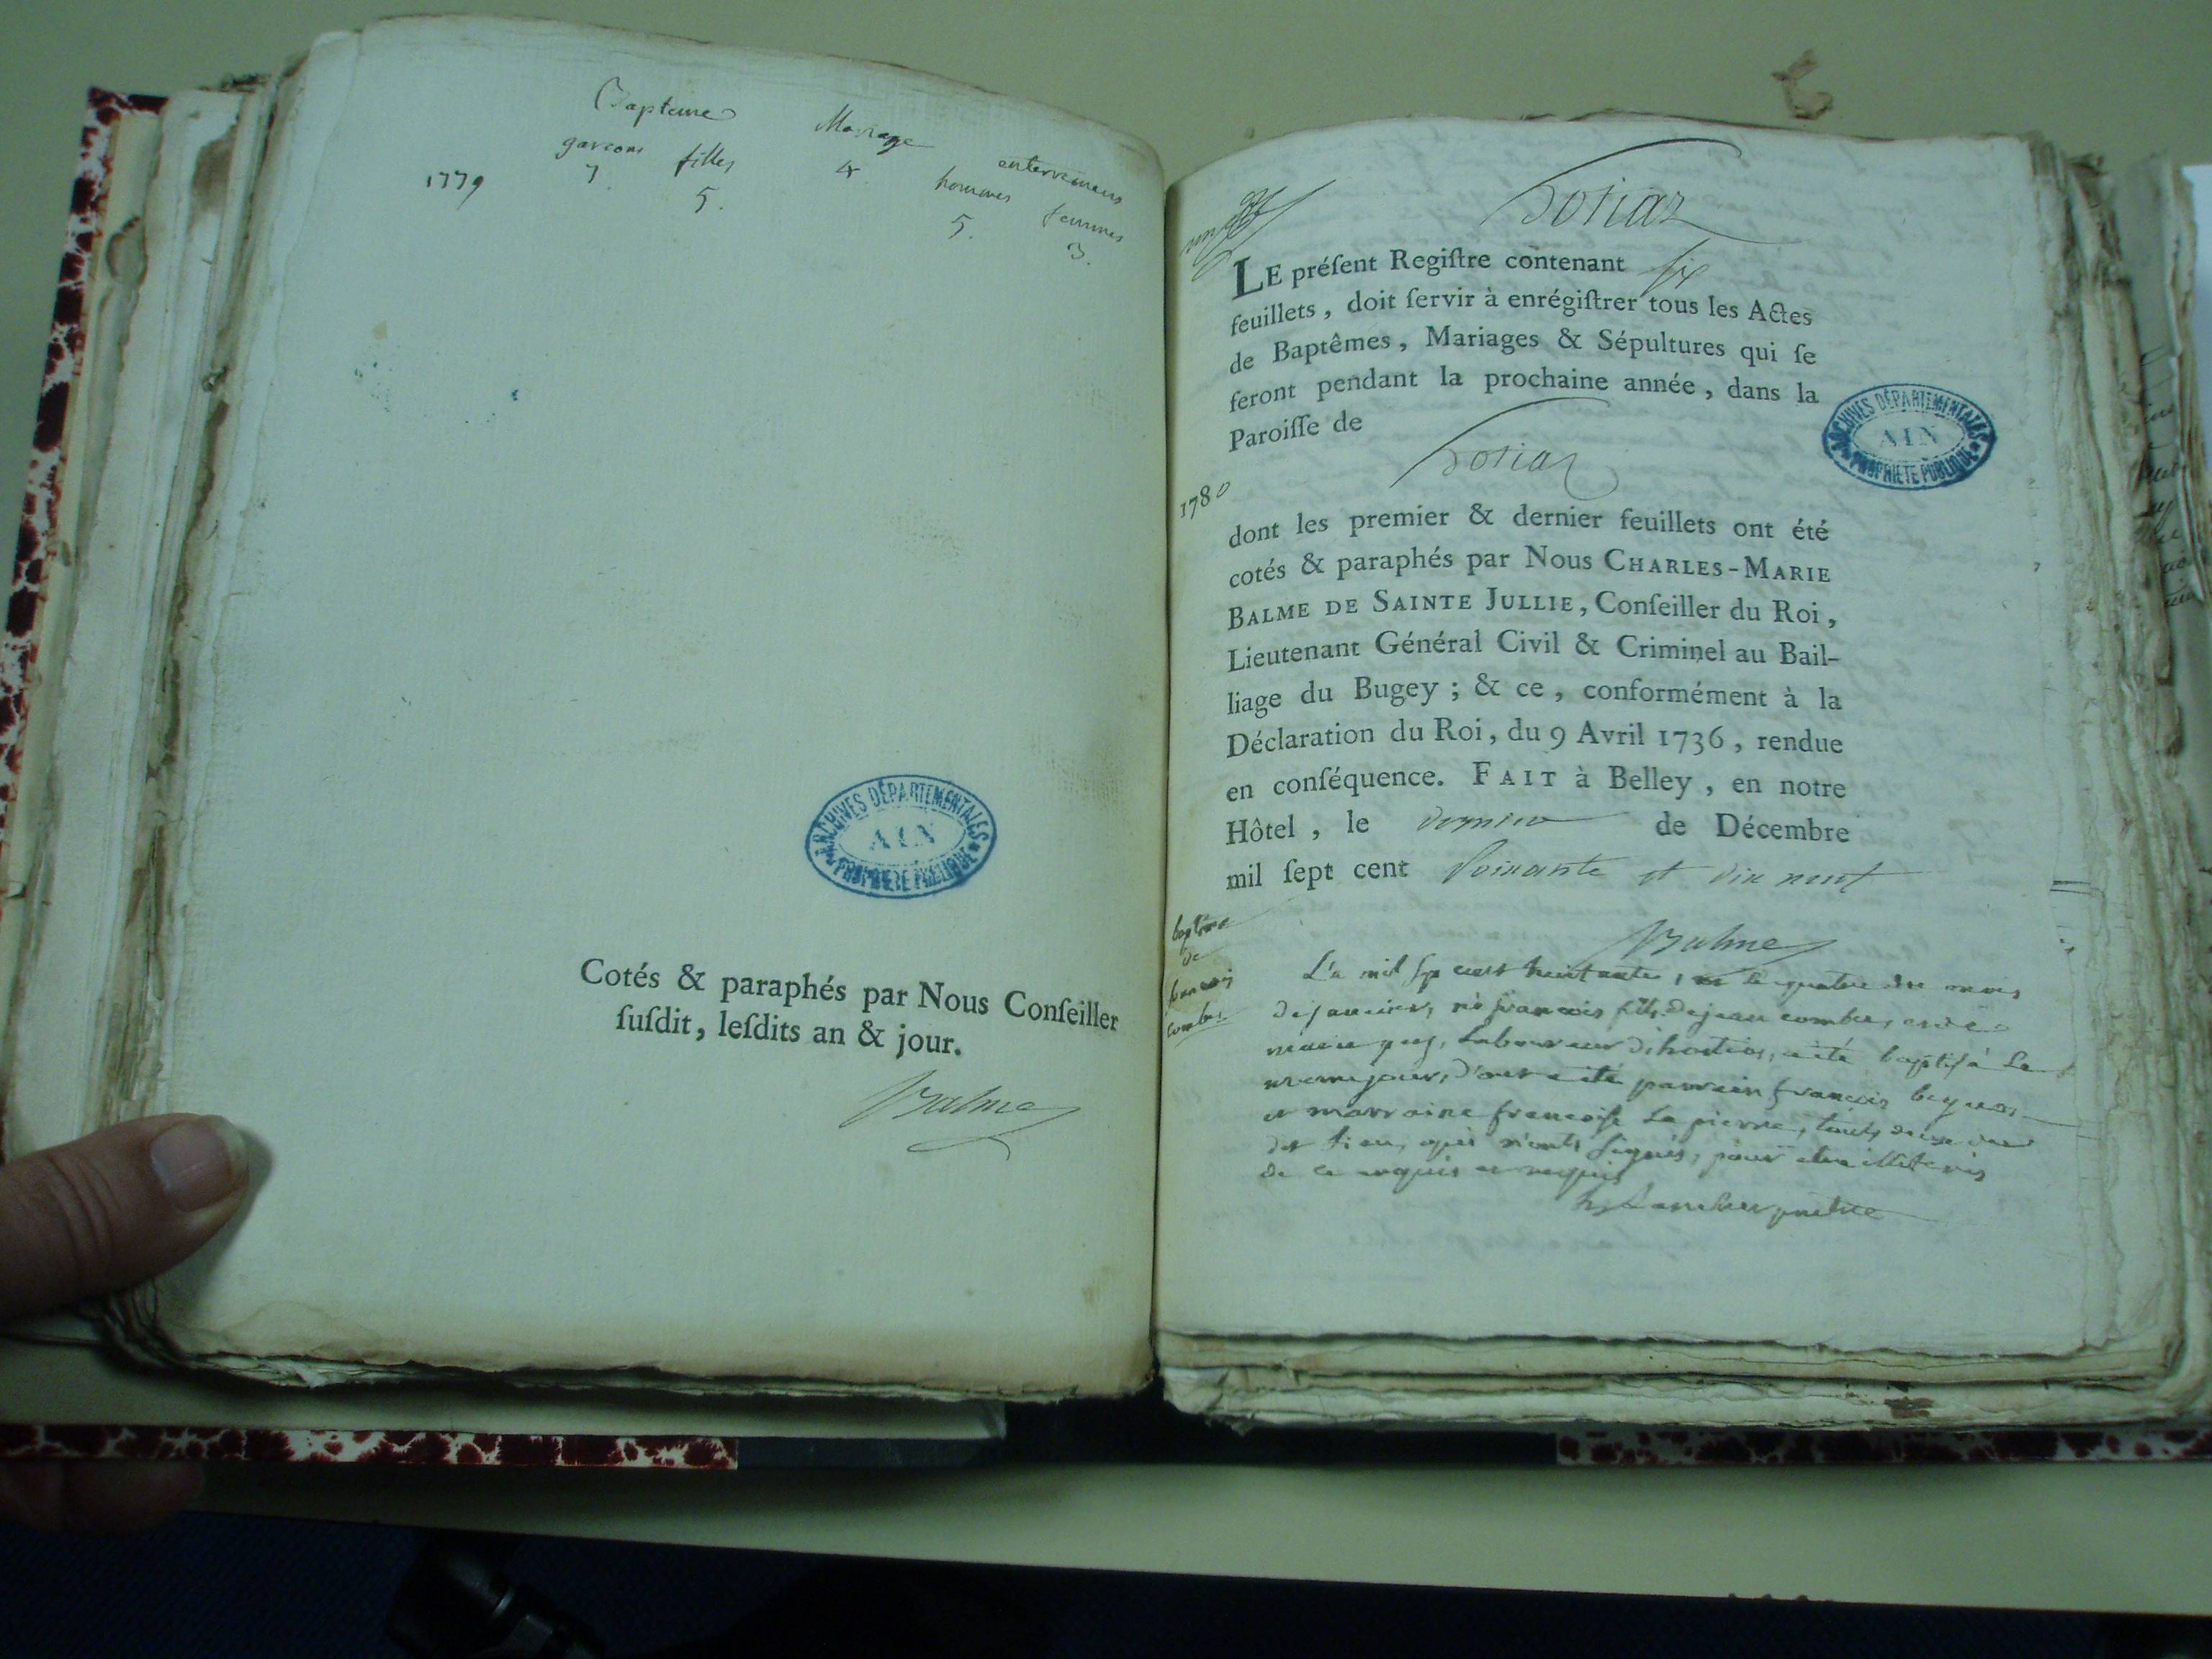 Bapteme Mariage enterremens
garcons filles hommes femmes
1779 7. 5. 4. 5. 3.
ARCHIVES DÉPARTEMENTALES
AIN
PROPRIÉTÉ PUBLIQUE
Cotés & paraphés par Nous Conſeiller
ſuſdit, leſdits an & jour.
Balme
LE préſent Regiſtre contenant six
feuillets, doit ſervir à enrégiſtrer tous les Actes
de Baptêmes, Mariages & Sépultures qui ſe
feront pendant la prochaine année, dans la
Paroiſſe de
ARCHIVES DÉPARTEMENTALES
AIN
PROPRIÉTÉ PUBLIQUE
1780
dont les premier & dernier feuillets ont été
cotés & paraphés par Nous CHARLES-MARIE
BALME DE SAINTE JULLIE, Conſeiller du Roi,
Lieutenant Général Civil & Criminel au Bail-
liage du Bugey ; & ce, conformément à la
Déclaration du Roi, du 9 Avril 1736, rendue
en conſéquence. FAIT à Belley, en notre
Hôtel, le dernier de Décembre
mil ſept cent Soixante et dix neuf
Balme
baptême
de
francois
combes
L'a mil sep cent huitante, le quatre du mois
de janvier, né francois fils de jean combes, et de
marie, Laboureur, a été baptisé le
meme jour, dont a été parrain francois
et marraine francoise La pierre, touts deux
dit Lieu, qui n'onts signés, pour etre illiteris
de ce enquis et requis